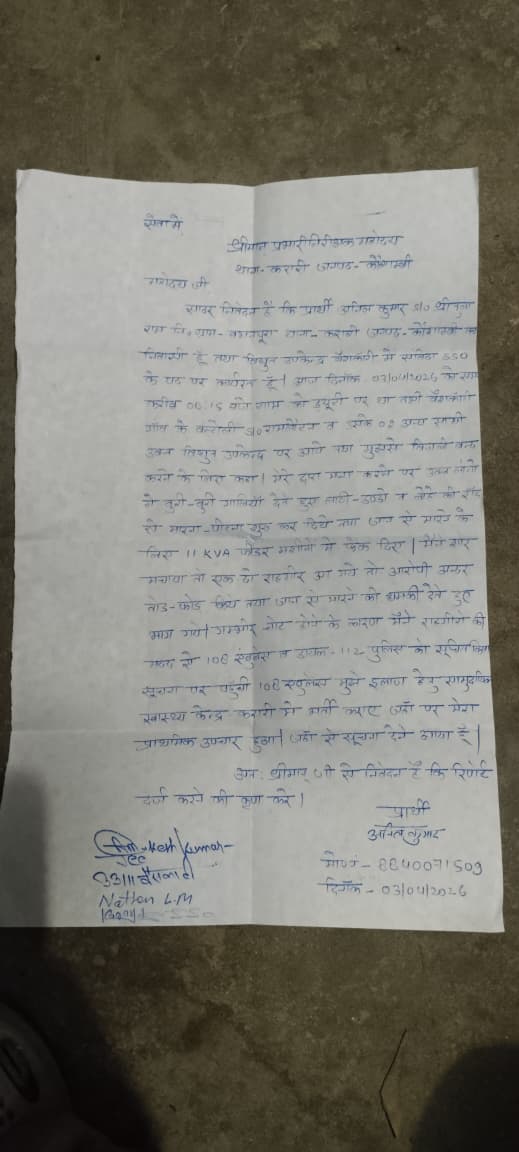 सेवा में
श्रीमान प्रभारी निरीक्षक महोदय
थाना- करारी जनपद- कौशाम्बी
महोदय जी
सादर निवेदन है कि प्रार्थी अनिल कुमार S/O श्री
राम नि० ग्राम- थाना- करारी जनपद- कौशाम्बी का
निवासी हूँ तथा विद्युत उपकेन्द्र में संविदा SSO
के पद पर कार्यरत हूँ। आज दिनाँक 03/04/2026 को समय
करीब 06:15 बजे शाम को ड्यूटी पर था तभी
गाँव के S/O व उसके 02 अन्य साथी
उक्त विद्युत उपकेन्द्र पर आये तथा मुझसे बिजली बन्द
करने के लिए कहा। मेरे द्वारा मना करने पर उक्त लोगो
ने बुरी-बुरी गालियाँ देते हुए लाठी-डण्डो व लोहे की रॉड
से मारना-पीटना शुरू कर दिये तथा जान से मारने के
लिए 11 KVA फीडर मशीनो में फेक दिए। मैंने शोर
मचाया तो एक दो राहगीर आ गये तो आरोपी अन्दर
तोड-फोड किये तथा जान से मारने की धमकी देते हुए
भाग गये। गम्भीर चोट होने के कारण मैंने राहगीरो की
मदद से 108 एंबुलेंस व डायल-112 पुलिस को सूचित किया
सूचना पर पहुँची 108 एंबुलेंस मुझे इलाज हेतु सामुदायिक
स्वास्थ्य केन्द्र करारी में भर्ती कराए जहाँ पर मेरा
प्राथमिक उपचार हुआ। जहाँ से सूचना देने आया हूँ।
अतः श्रीमान् जी से निवेदन है कि रिपोर्ट
दर्ज करने की कृपा करें।
प्रार्थी
अनिल कुमार
मो०नं०- 8840071509
दिनाँक - 03/04/2026
Kumar
33/11
L.M